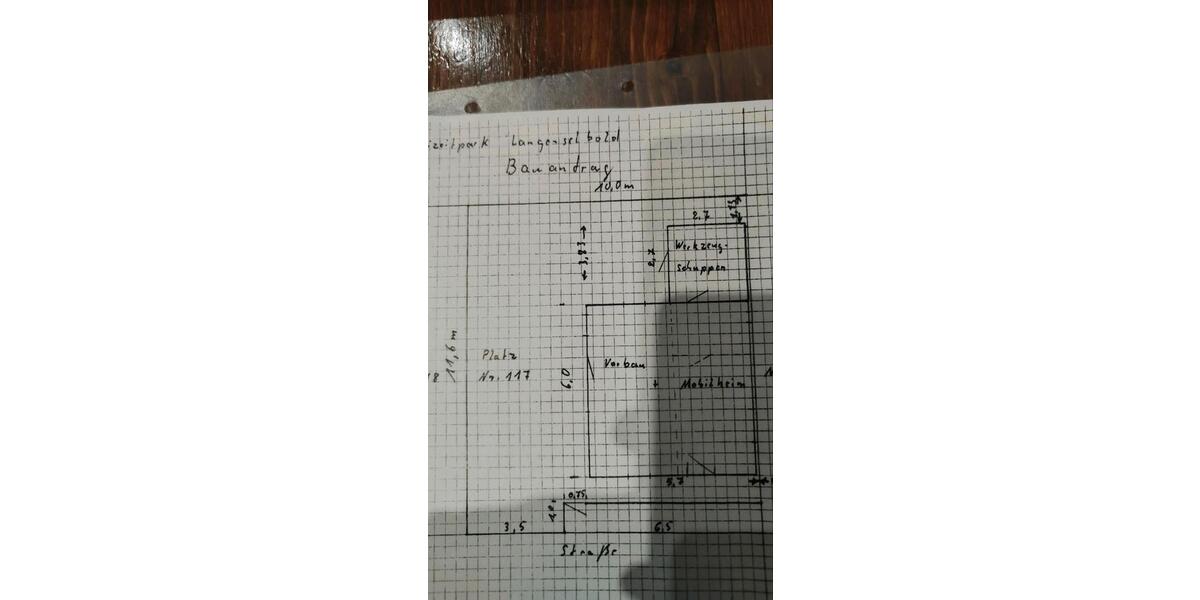 izeitpark Langenselbold
Bauandrag
10,0m
2,7
3,83
2,7
Werkzeug-
schuppen
11,6 m
Platz
Nr. 117
8
6,0
Vorbau
+ Mobilheim
5,7
0,75
1,0
3,5
6,5
Straße